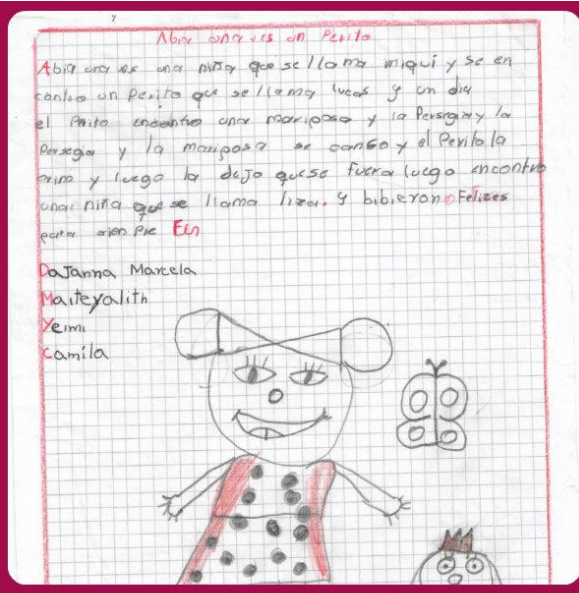 Abia una ves un Perito
Abia una ves una niña que se llama miqui y se en
contro un Perito que se llama lucas y un dia
el Perito encontro una mariposa y la Persegia y la
Persegia y la mariposa se canso y el Perito la
y luego la dejo que se fuera luego encontro
una niña que se llama liza. y bibieron Felizes
para sien pre Fin
DaJanna Marcela
Maiteyalith
Yeimi
Camila